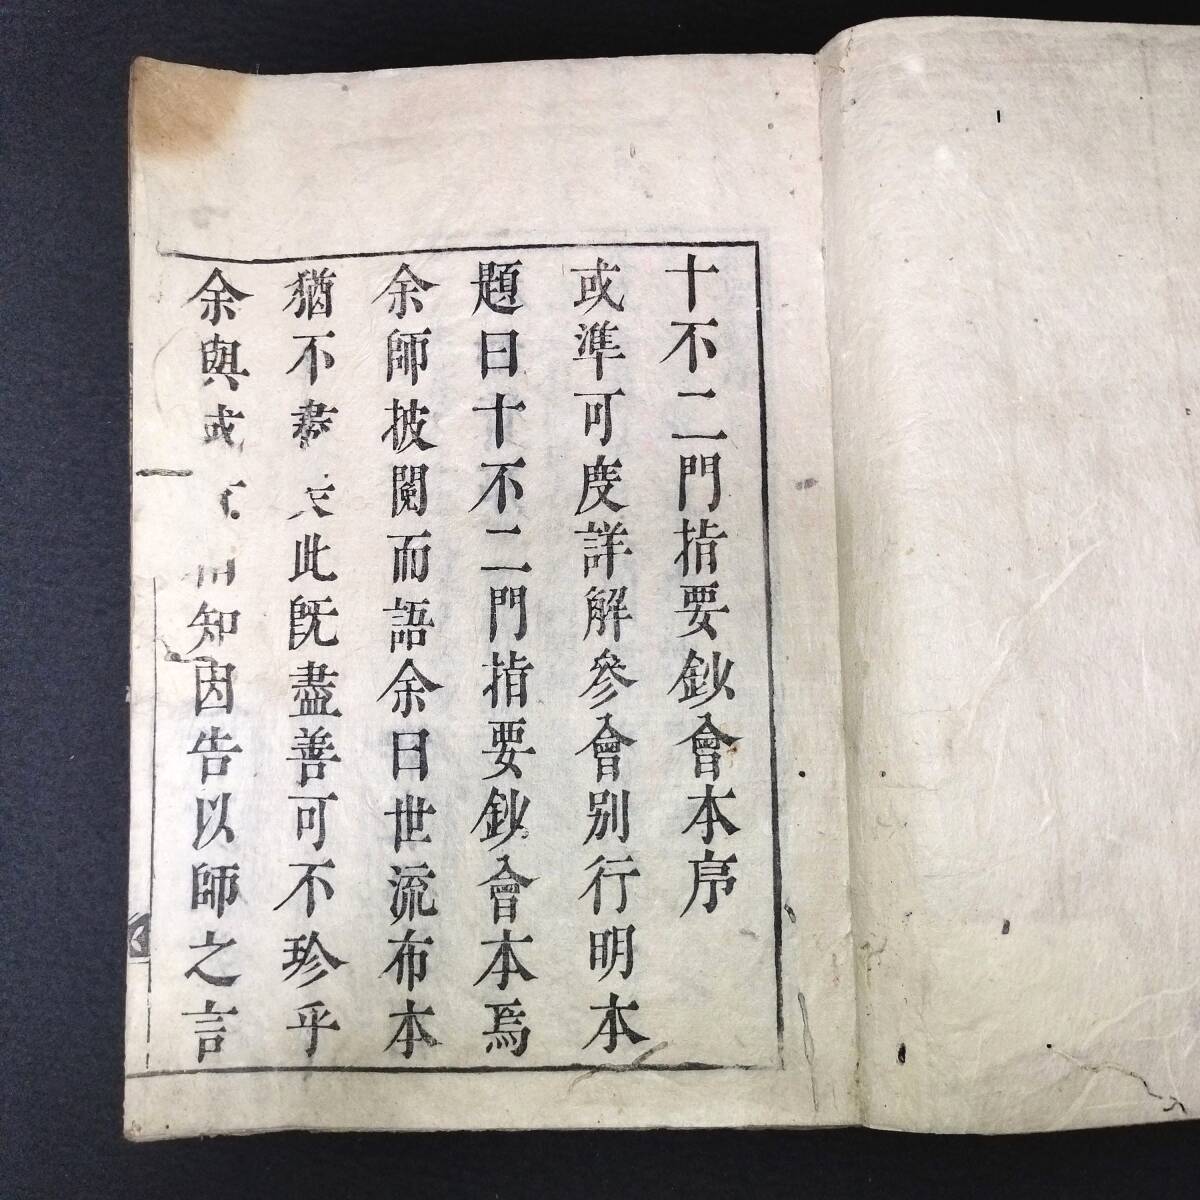 十不二門指要鈔會本序
或準可度詳解參會別行明本
題曰十不二門指要鈔會本焉
余師披閱而語余曰世流布本
猶不盡此既盡善可不珍乎
余與或知因告以師之言